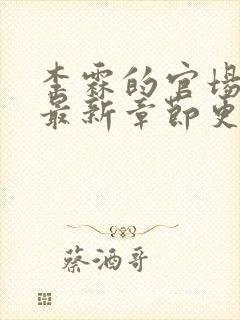 李霖的官场
最新章節更
蔡酒哥